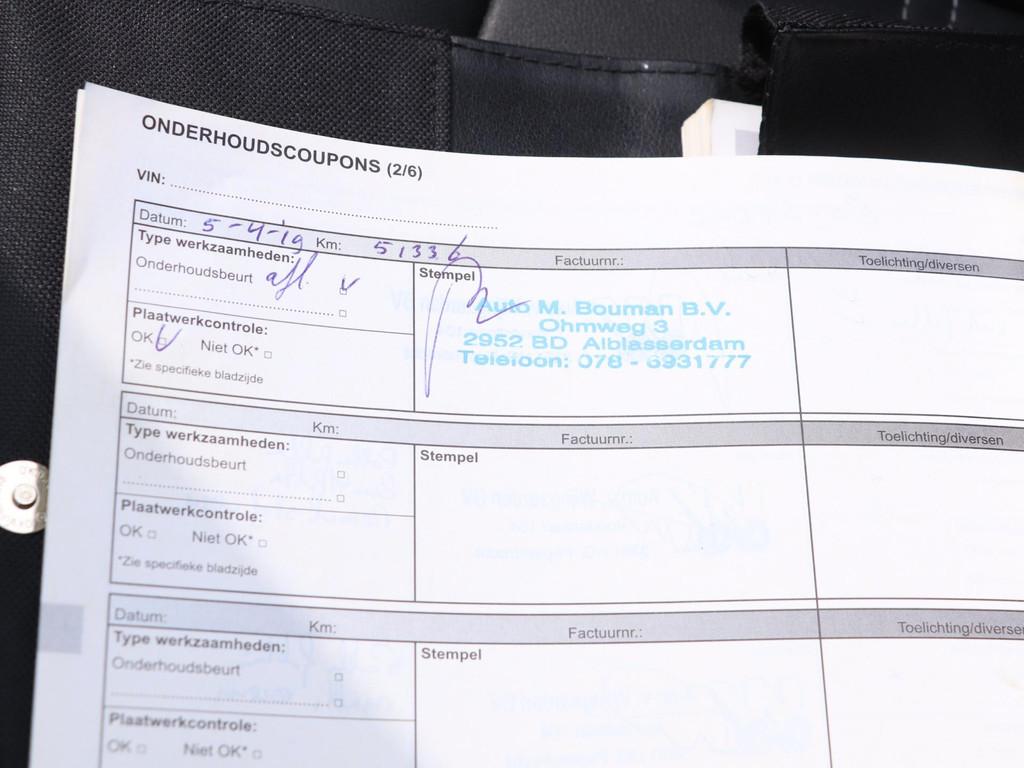 ONDERHOUDSCOUPONS (2/6)
VIN:
Datum: 5-4-'19 Km: 51336 Factuurnr.: Toelichting/diversen
Type werkzaamheden:
Onderhoudsbeurt afl. v
Stempel
Auto M. Bouman B.V.
Ohmweg 3
2952 BD Alblasserdam
Telefoon: 078 - 6931777
Plaatwerkcontrole:
OK Niet OK*
*Zie specifieke bladzijde
Datum: Km: Factuurnr.: Toelichting/diversen
Type werkzaamheden:
Onderhoudsbeurt
Stempel
Plaatwerkcontrole:
OK Niet OK*
*Zie specifieke bladzijde
Datum: Km: Factuurnr.: Toelichting/diversen
Type werkzaamheden:
Onderhoudsbeurt
Stempel
Plaatwerkcontrole:
OK Niet OK*